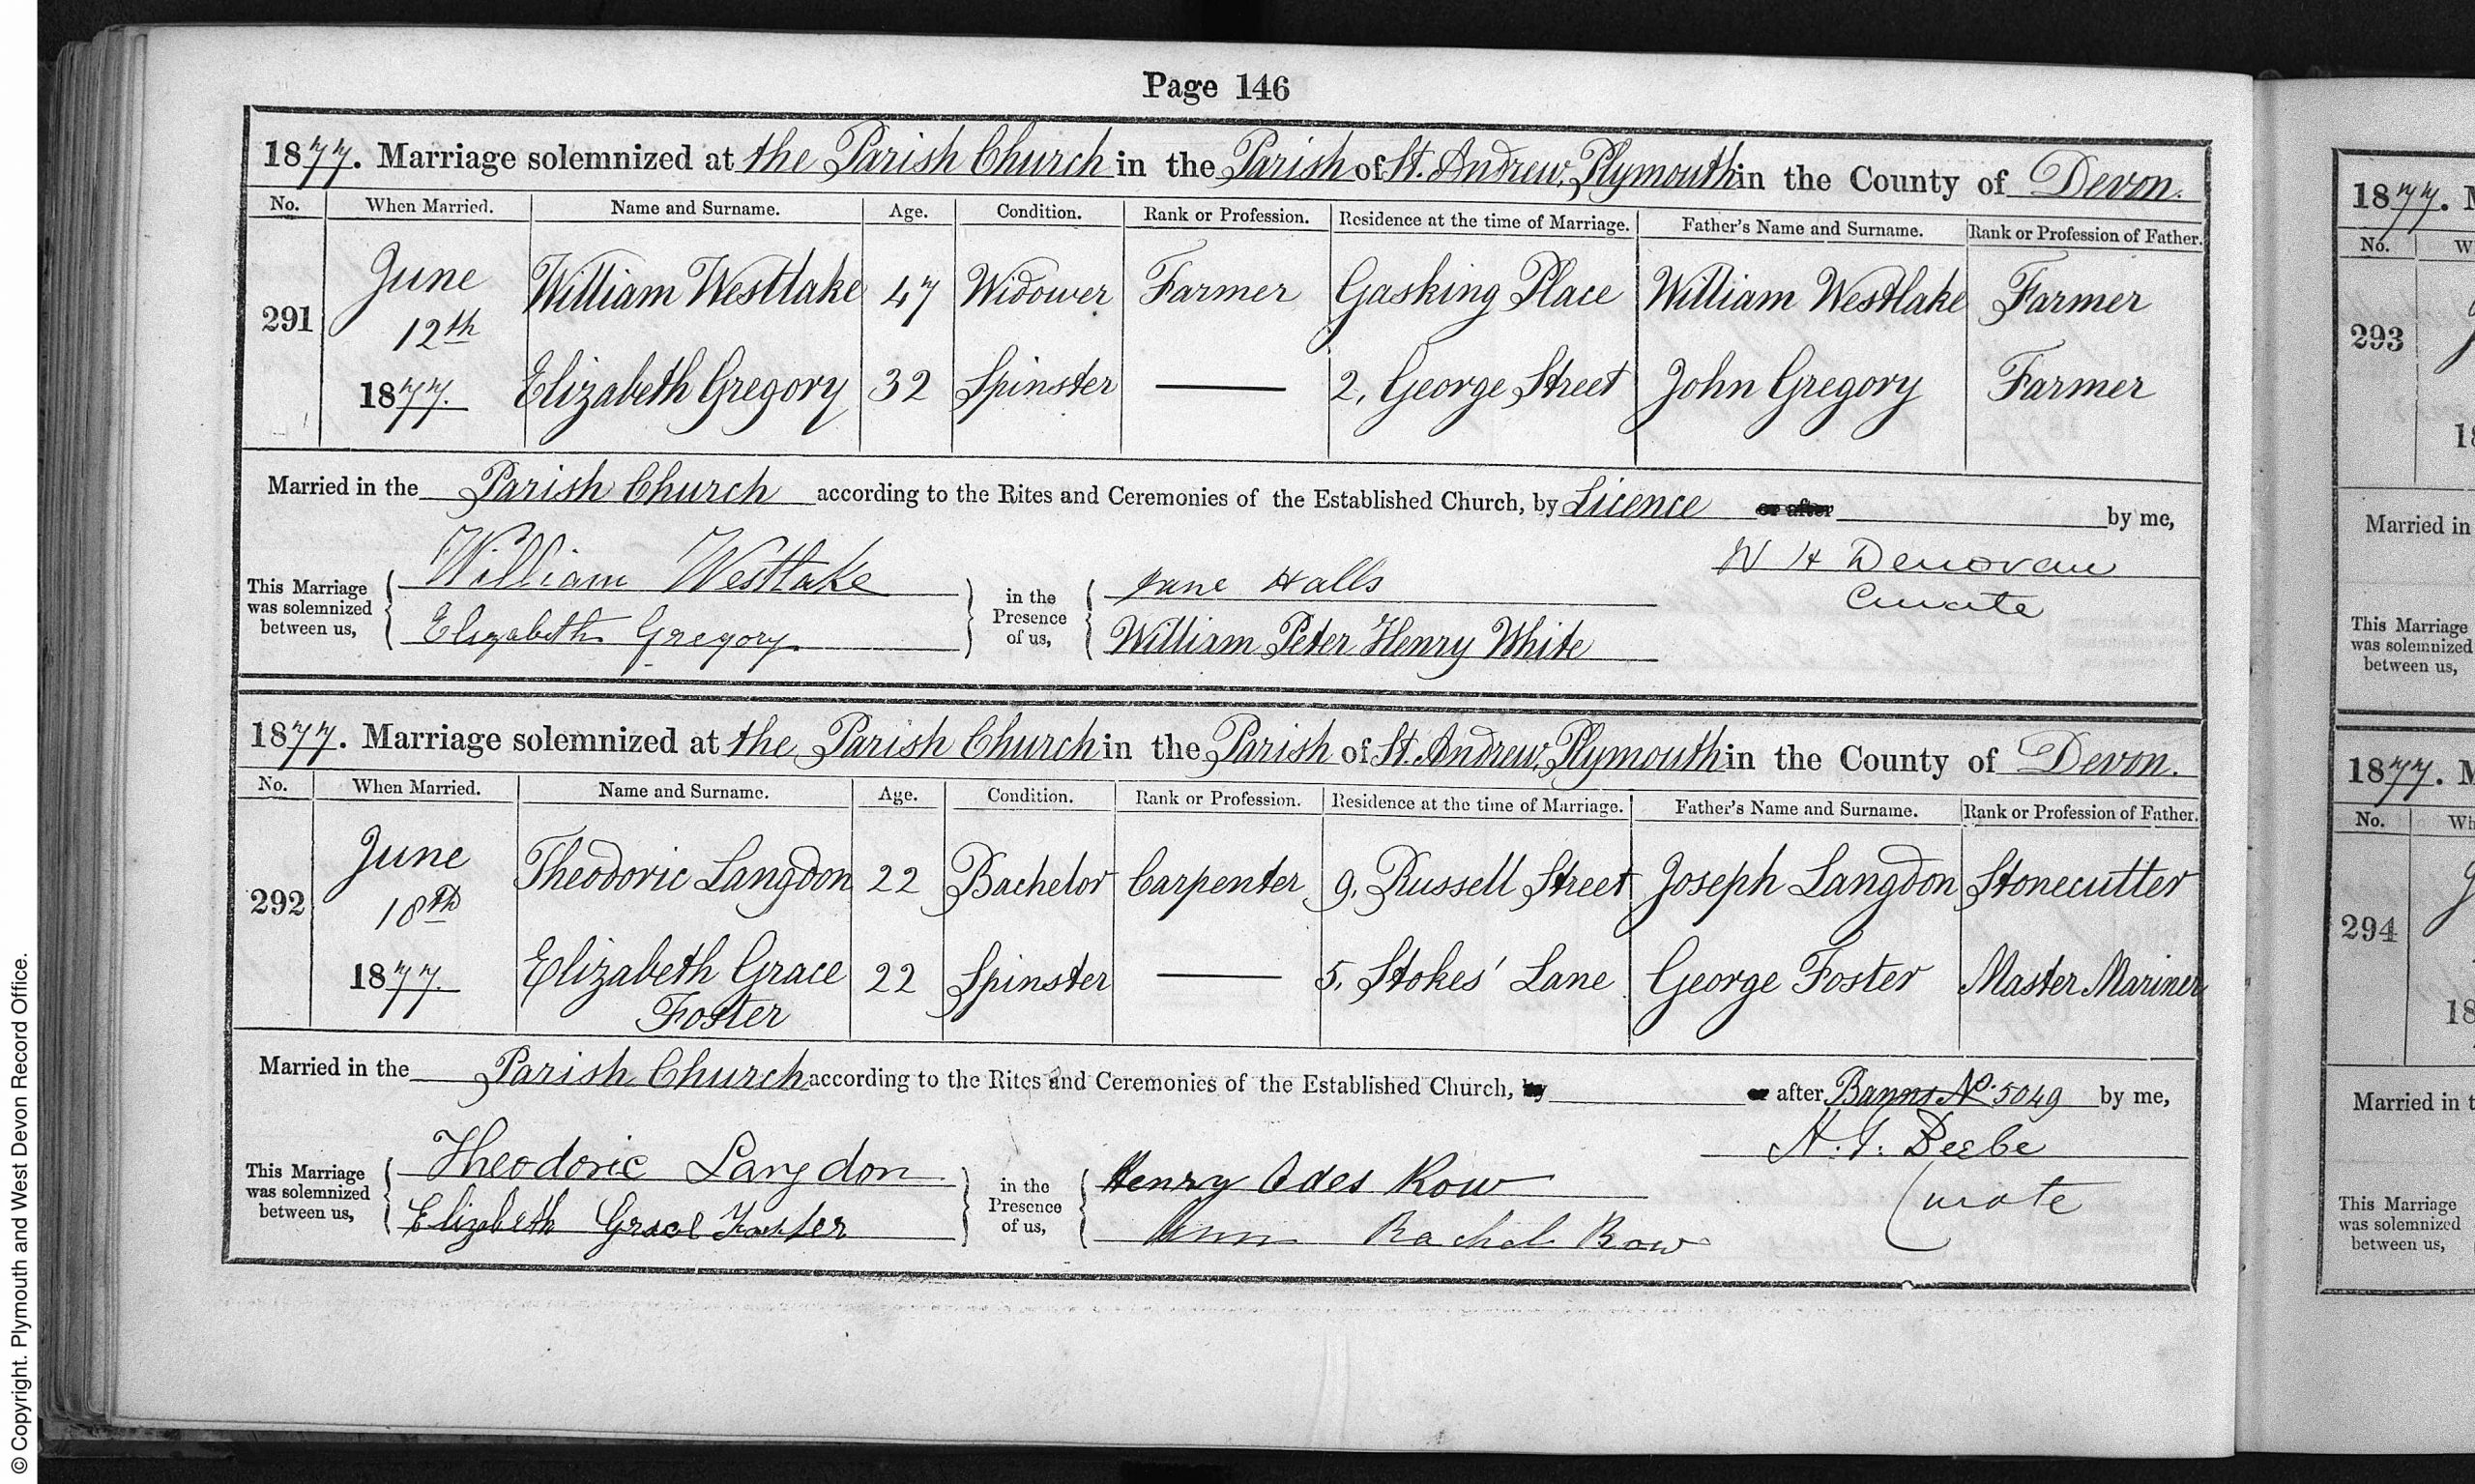 Page 146
1877. Marriage solemnized at the Parish Church in the Parish of St. Andrew, Plymouth in the County of Devon.
No. When Married. Name and Surname. Age. Condition. Rank or Profession. Residence at the time of Marriage. Father's Name and Surname. Rank or Profession of Father.
291 June 12th 1877.
William Westlake 47 Widower Farmer Gasking Place William Westlake Farmer
Elizabeth Gregory 32 Spinster — 2, George Street John Gregory Farmer
Married in the Parish Church according to the Rites and Ceremonies of the Established Church, by Licence or after by me,
W H Donovan
Curate
This Marriage was solemnized between us,
William Westlake
Elizabeth Gregory
in the Presence of us,
Jane Halls
William Peter Henry White
1877. Marriage solemnized at the Parish Church in the Parish of St. Andrew, Plymouth in the County of Devon.
No. When Married. Name and Surname. Age. Condition. Rank or Profession. Residence at the time of Marriage. Father's Name and Surname. Rank or Profession of Father.
292 June 18th 1877.
Theodoric Langdon 22 Bachelor Carpenter 9, Russell Street Joseph Langdon Stonecutter
Elizabeth Grace Foster 22 Spinster — 5, Stokes' Lane George Foster Master Mariner
Married in the Parish Church according to the Rites and Ceremonies of the Established Church, by or after Banns No. 5049 by me,
Beebe
Curate
This Marriage was solemnized between us,
Theodoric Langdon
Elizabeth Grace Foster
in the Presence of us,
Henry Odes Row
Ann Rachel Row
1877. M
No. W
293
18
Married in
This Marriage
was solemnized
between us,
1877. M
No. Wh
294
18
Married in t
This Marriage
was solemnized
between us,
© Copyright. Plymouth and West Devon Record Office.